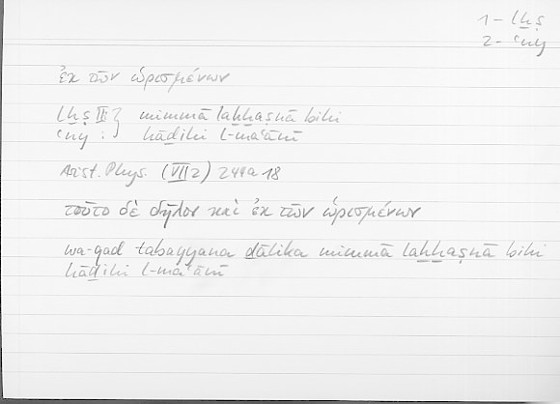 1 - lḫṣ
2 - ʿny
ἐκ τῶν ὡρισμένων
lḫṣ II } mimmā laḫḫaṣnā bihi
ʿny : } hāḏihi l-maʿānī
Arist. Phys. (VII 2) 244a 18
τοῦτο δὲ δῆλον καὶ ἐκ τῶν ὡρισμένων
wa-qad tabayyana ḏālika mimmā laḫḫaṣnā bihi
hāḏihi l-maʿānī